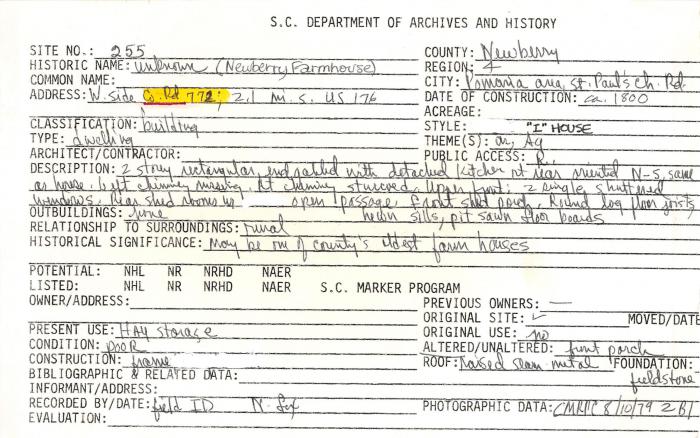 S.C. DEPARTMENT OF ARCHIVES AND HISTORY
SITE NO.: 255 COUNTY: Newberry
HISTORIC NAME: unknown (Newberry Farmhouse) REGION: 4
COMMON NAME: CITY: Pomaria area, St. Paul's Ch. Rd.
ADDRESS: W. side Co. Rd 772; 2.1 mi. s. US 176 DATE OF CONSTRUCTION: ca. 1800
ACREAGE:
CLASSIFICATION: building STYLE: "I" HOUSE
TYPE: dwelling THEME(S): ar, Ag
ARCHITECT/CONTRACTOR: PUBLIC ACCESS:
DESCRIPTION: 2 story rectangular, endgabled with detached kitchen at rear oriented N-S, same
as house. Left chimney missing. Rt chimney stuccoed. Upper front: 2 single shuttered
windows. Rear shed rooms w/ open passage. Front shed porch. Round log floor joists
OUTBUILDINGS: none hewn sills, pit sawn floor boards
RELATIONSHIP TO SURROUNDINGS: rural
HISTORICAL SIGNIFICANCE: May be one of county's oldest farm houses
POTENTIAL: NHL NR NRHD NAER
LISTED: NHL NR NRHD NAER S.C. MARKER PROGRAM
OWNER/ADDRESS: PREVIOUS OWNERS: —
ORIGINAL SITE: ✓ MOVED/DATE
PRESENT USE: HAY storage ORIGINAL USE: no
CONDITION: POOR ALTERED/UNALTERED: front porch
CONSTRUCTION: frame ROOF: Raised seam metal FOUNDATION:
BIBLIOGRAPHIC & RELATED DATA: fieldstone
INFORMANT/ADDRESS:
RECORDED BY/DATE: field ID N. Fox PHOTOGRAPHIC DATA: 8/10/79 2B1
EVALUATION: